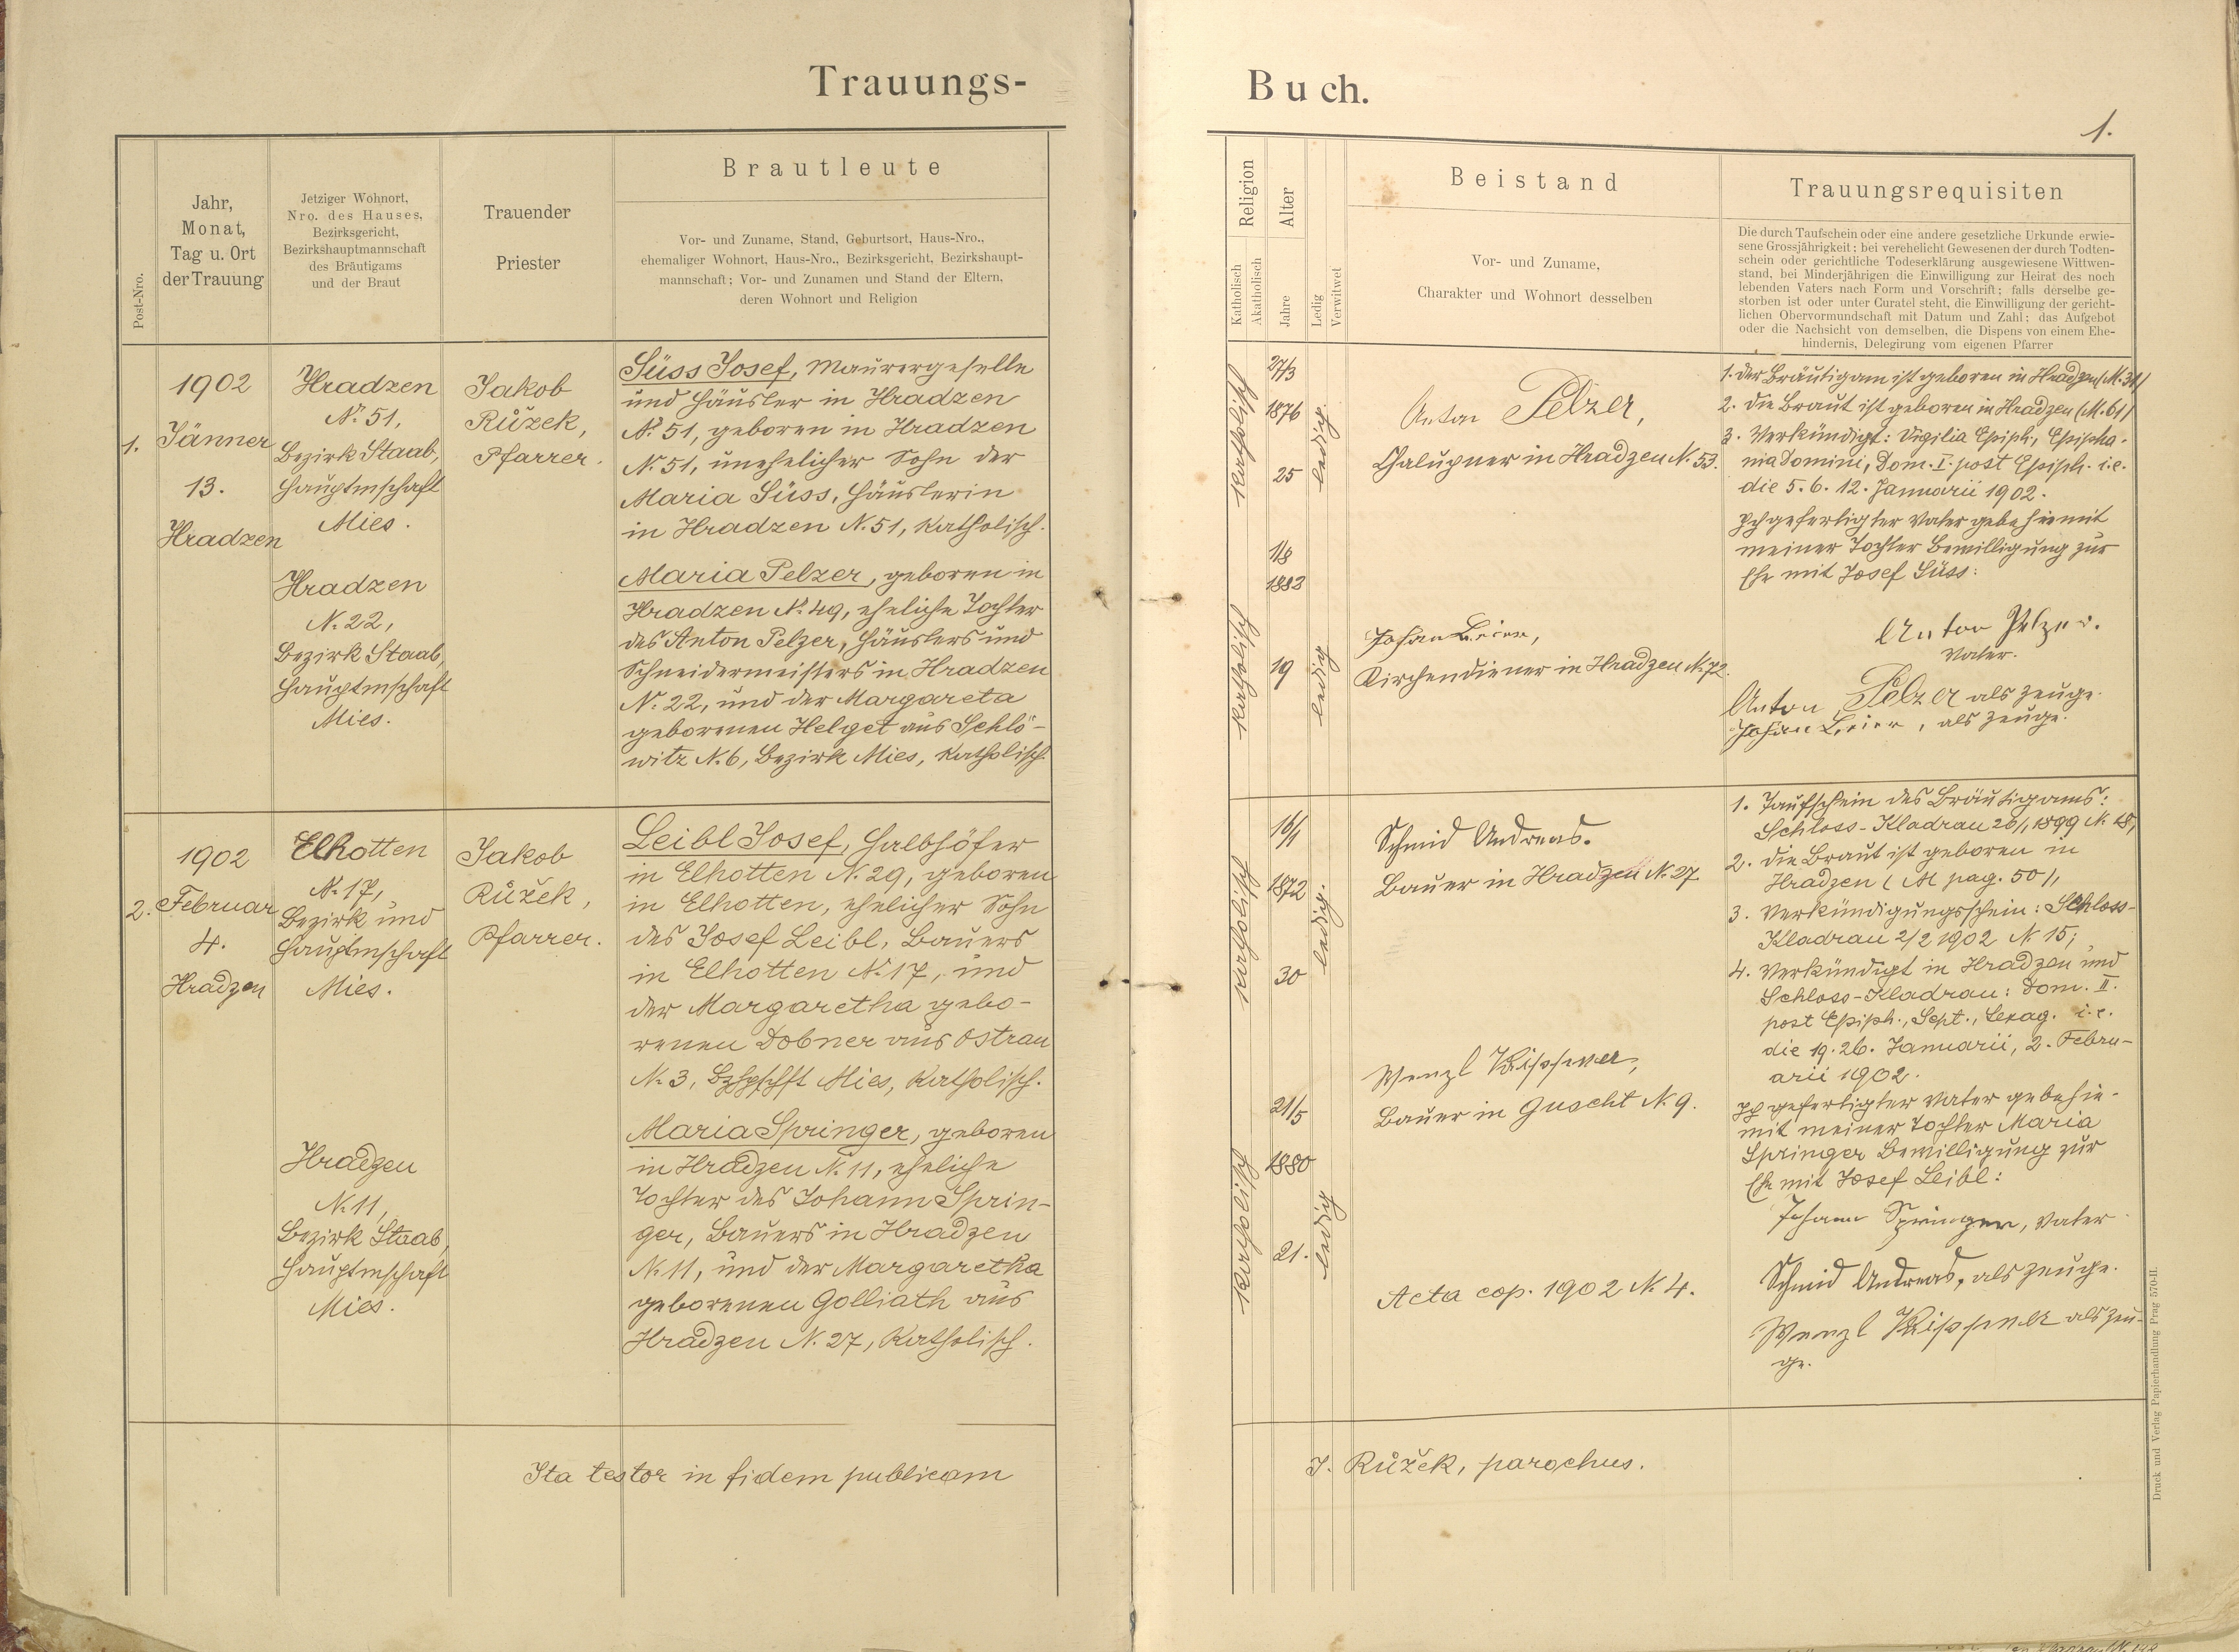 Trauungs-
Post-Nro.
Jahr,
Monat,
Tag u. Ort
der Trauung
Jetziger Wohnort,
Nro. des Hauses,
Bezirksgericht,
Bezirkshauptmannschaft
des Bräutigams
und der Braut
Trauender
Priester
Brautleute
Vor- und Zuname, Stand, Geburtsort, Haus-Nro.,
ehemaliger Wohnort, Haus-Nro., Bezirksgericht, Bezirkshaupt-
mannschaft; Vor- und Zunamen und Stand der Eltern,
deren Wohnort und Religion
1.
1902
Jänner
13.
Hradzen
Hradzen
N. 51,
Bezirk Staab,
Hauptmschaft
Mies.
Hradzen
N. 22,
Bezirk Staab,
Hauptmschaft
Mies.
Jakob
Růžek,
Pfarrer.
Süss Josef, Maurergeselle
und Häusler in Hradzen
N. 51, geboren in Hradzen
N. 51, unehelicher Sohn der
Maria Süss, Häuslerin
in Hradzen N. 51, katholisch.
Maria Pelzer, geboren in
Hradzen N. 49, eheliche Tochter
des Anton Pelzer, Häuslers und
Schneidermeisters in Hradzen
N. 22, und der Margareta
geborenen Helget aus Schlo-
witz N. 6, Bezirk Mies, katholisch.
2.
1902
Februar
4.
Hradzen
Elhotten
N. 17,
Bezirk und
Hauptmschaft
Mies.
Hradzen
N. 11,
Bezirk Staab,
Hauptmschaft
Mies.
Jakob
Růžek,
Pfarrer.
Leibl Josef, Halbhöfer
in Elhotten N. 29, geboren
in Elhotten, ehelicher Sohn
des Josef Leibl, Bauers
in Elhotten N. 17, und
der Margaretha gebo-
renen Dobner aus Ostrau
N. 3, Bzhptschft Mies, katholisch.
Maria Springer, geboren
in Hradzen N. 11, eheliche
Tochter des Johann Sprin-
ger, Bauers in Hradzen
N. 11, und der Margaretha
geborenen Golliath aus
Hradzen N. 27, katholisch.
Ita testor in fidem publicam
Buch.
1.
Religion
Katholisch
Akatholisch
Alter
Jahre
Ledig
Verwitwet
Beistand
Vor- und Zuname,
Charakter und Wohnort desselben
Trauungsrequisiten
Die durch Taufschein oder eine andere gesetzliche Urkunde erwie-
sene Grossjährigkeit; bei verehelicht Gewesenen der durch Todten-
schein oder gerichtliche Todeserklärung ausgewiesene Wittwen-
stand, bei Minderjährigen die Einwilligung zur Heirat des noch
lebenden Vaters nach Form und Vorschrift; falls derselbe ge-
storben ist oder unter Curatel steht, die Einwilligung der gericht-
lichen Obervormundschaft mit Datum und Zahl; das Aufgebot
oder die Nachsicht von demselben, die Dispens von einem Ehe-
hindernis, Delegirung vom eigenen Pfarrer
katholisch
27/3
1876
25
ledig.
katholisch
1/8
1882
19
ledig
Anton Pelzer,
Chalupner in Hradzen N. 53.
Johan Leier,
Kirchendiener in Hradzen N. 72.
1. Der Bräutigam ist geboren in Hradzen (M. 31)
2. Die Braut ist geboren in Hradzen (M. 61)
3. Verkündigt: Vigilia Epiph., Epipha-
nia Domini, Dom. I. post Epiph. i.e.
die 5. 6. 12. Januarii 1902.
Ich gefertigter Vater gebe hiemit
meiner Tochter Bewilligung zur
Ehe mit Josef Süss:
Anton Pelzer.
Vater.
Anton Pelzer als Zeuge.
Johan Leier, als Zeuge.
katholisch
16/1
1872
30
ledig.
katholisch
21/5
1880
21.
ledig
Schmid Andreas.
Bauer in Hradzen N. 27
Wenzl
Bauer in Guscht N. 9.
Acta cop. 1902 N. 4.
1. Taufschein des Bräutigams:
Schloss-Kladrau 26/1 1899 N. 18,
2. Die Braut ist geboren in
Hradzen (M pag. 50),
3. Verkündigungsschein: Schloss-
Kladrau 2/2 1902 N. 15;
4. Verkündigt in Hradzen und
Schloss-Kladrau: Dom. II.
post Epiph., Sept., Sexag. i.e.
die 19. 26. Januarii, 2. Febru-
arii 1902.
Ich gefertigter Vater gebe hie-
mit meiner Tochter Maria
Springer Bewilligung zur
Ehe mit Josef Leibl:
Johann Springer, Vater
Schmid Andreas, als Zeuge.
Wenzl als Zeu-
ge.
J. Růžek, parochus.
Druck und Verlag Papierhandlung Prag 570-II.